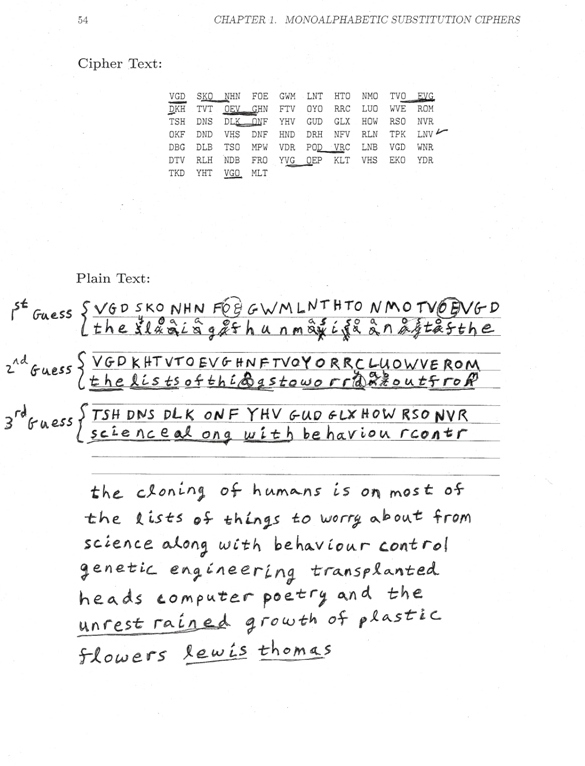 54 CHAPTER 1. MONOALPHABETIC SUBSTITUTION CIPHERS
Cipher Text:
VGD SKO NHN FOE GWM LNT HTO NMO TVO EVG
DKH TVT OEV GHN FTV OYO RRC LUO WVE ROM
TSH DNS DLK ONF YHV GUD GLX HOW RSO NVR
OKF DND VHS DNF HND DRH NFV RLN TPK LNV
DBG DLB TSO MPW VDR POD VRC LNB VGD WNR
DTV RLH NDB FRO YVG OEP KLT VHS EKO YDR
TKD YHT VGO MLT
Plain Text:
1st Guess { VGD SKO NHN FOE GWMLNTHTO NMOTVOEVGD
2nd Guess { VGDKHTVTOEVGHNFTVOYORRCLUOWVEROM
the lists of
3rd Guess { TSH DNS DLK ONF YHV GUD GLX HOW RSO NVR
scienceal ong with behaviou rcontr
the cloning of humans is on most of
the lists of things to worry about from
science along with behaviour control
genetic engineering transplanted
heads computer poetry and the
unrest rained growth of plastic
flowers lewis thomas